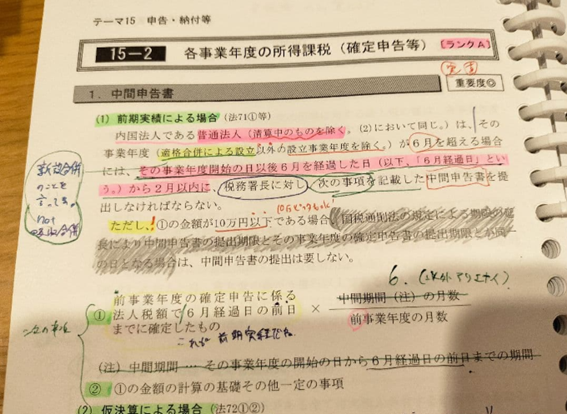 テーマ15 申告・納付等
15－2 各事業年度の所得課税（確定申告等）
【ランクA】
重要度◎
1．中間申告書
(1) 前期実績による場合（法71①等）
内国法人である普通法人（清算中のものを除く。(2)において同じ。）は、その
事業年度（適格合併による設立以外の設立事業年度を除く。）が6月を超える場合
には、その事業年度開始の日以後6月を経過した日（以下、「6月経過日」とい
う。）から2月以内に、税務署長に対し、次の事項を記載した中間申告書を提
出しなければならない。
新設合併
のことを
言ってる。
not
ただし、①の金額が10万円以下である場合
長により中間申告書の提出期限とその事業年度の確定申告書の提出期限とが同一
の日となる場合は、中間申告書の提出は要しない。
6.
① 前事業年度の確定申告に係る法人税額で6月経過日の前日までに確定したもの × 中間期間（注）の月数／前事業年度の月数
これが前期実績だね
（注）中間期間 … その事業年度の開始の日から6月経過日の前日までの期間
② ①の金額の計算の基礎その他一定の事項
(2) 仮決算による場合（法72①②）